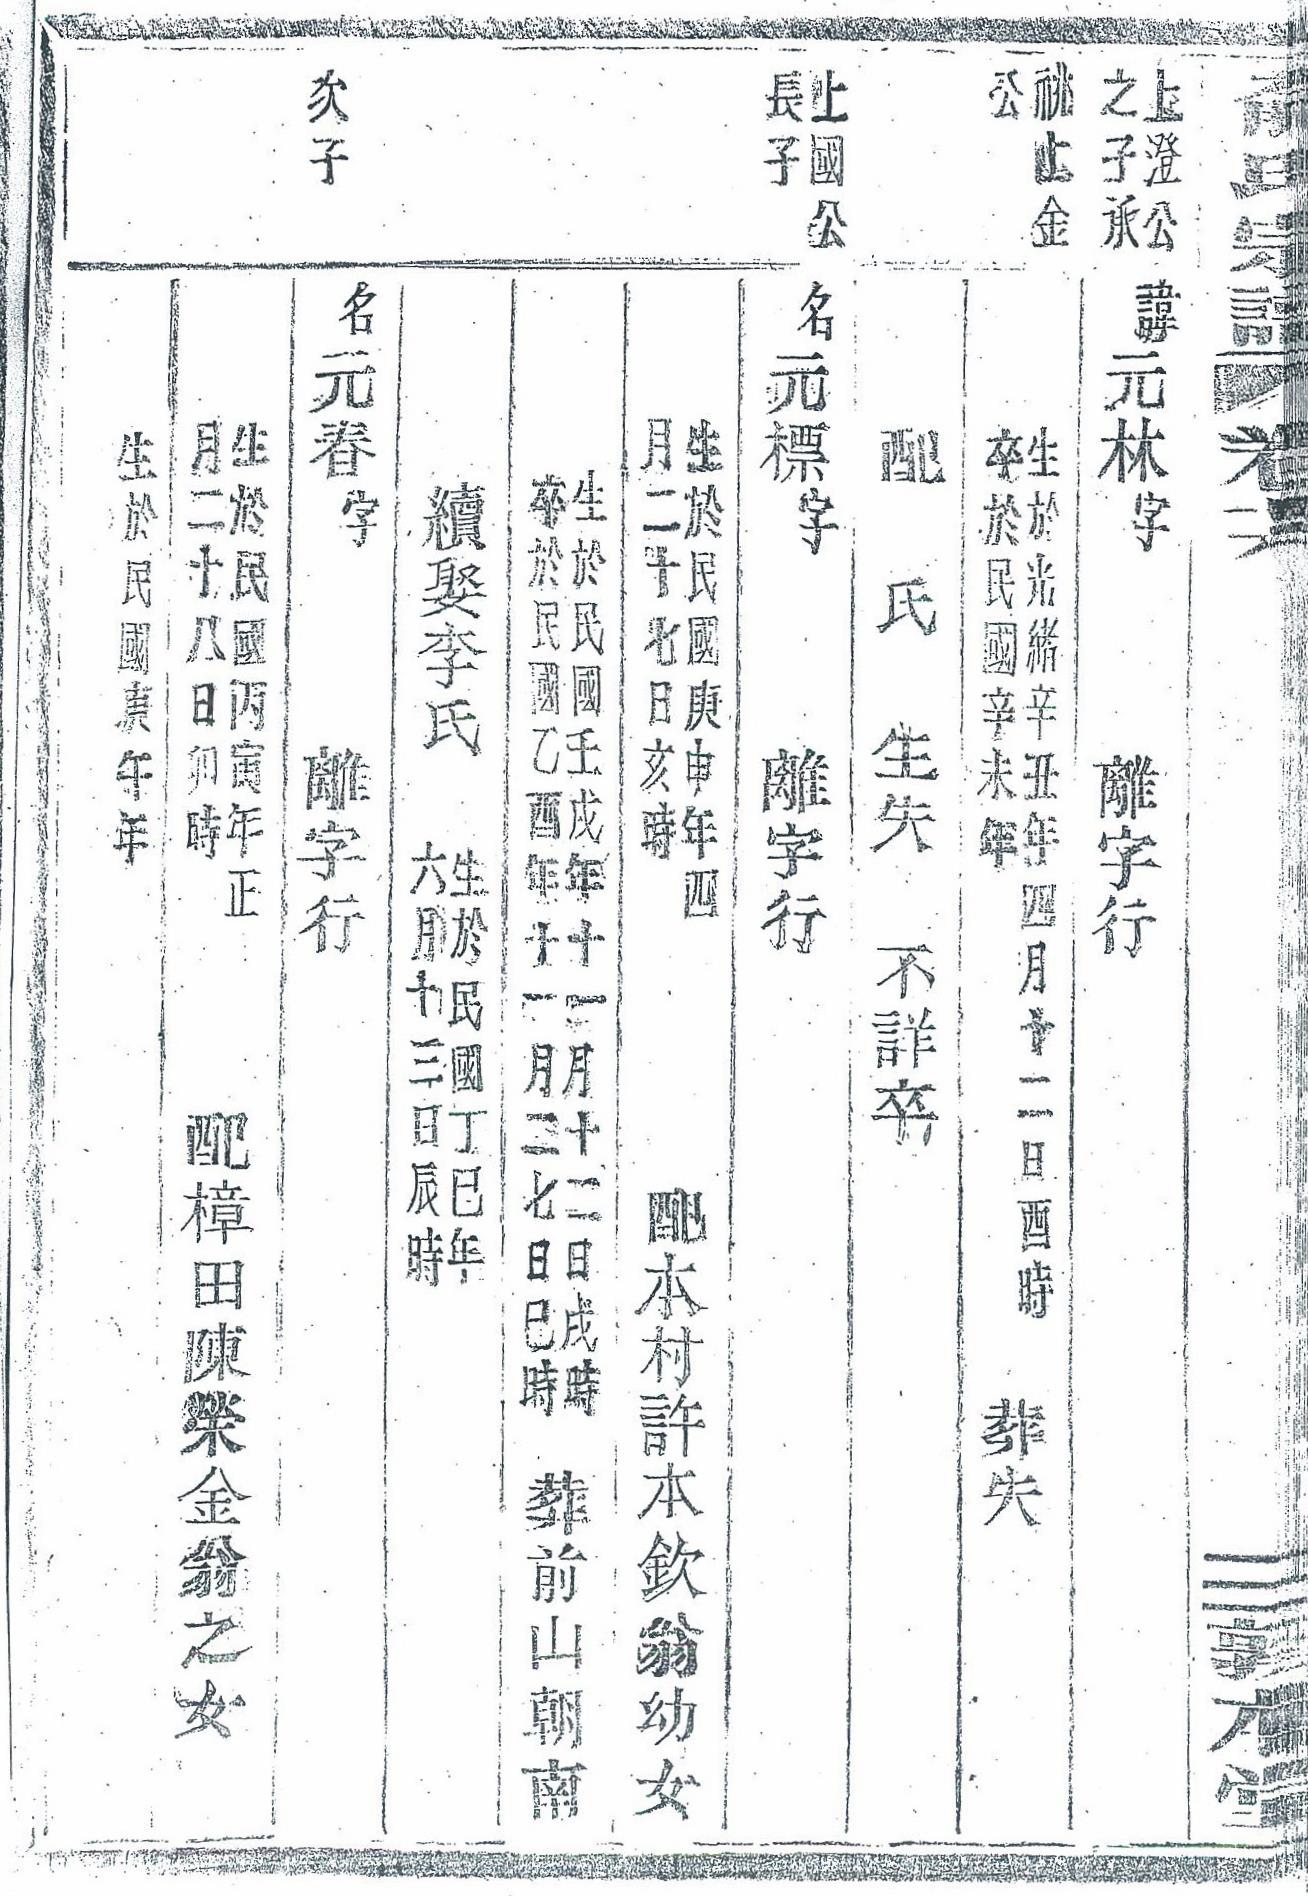 氏宗譜 卷六
敦本堂
上澄公
之子承
祧上金
公
諱元林字 離字行
生於光緒辛丑年四月十二日酉時
卒於民國辛未年
葬失
配 氏 生失 不詳卒
上國公
長子
名元標字 離字行
生於民國庚申年四
月二十七日亥時
配本村許本欽翁幼女
生於民國壬戌年十一月十二日戌時
卒於民國乙酉年十一月二七日巳時
葬前山朝南
續娶李氏
生於民國丁巳年
六月十三日辰時
次子
名元春字 離字行
生於民國丙寅年正
月二十八日卯時
配樟田陳榮金翁之女
生於民國庚午年